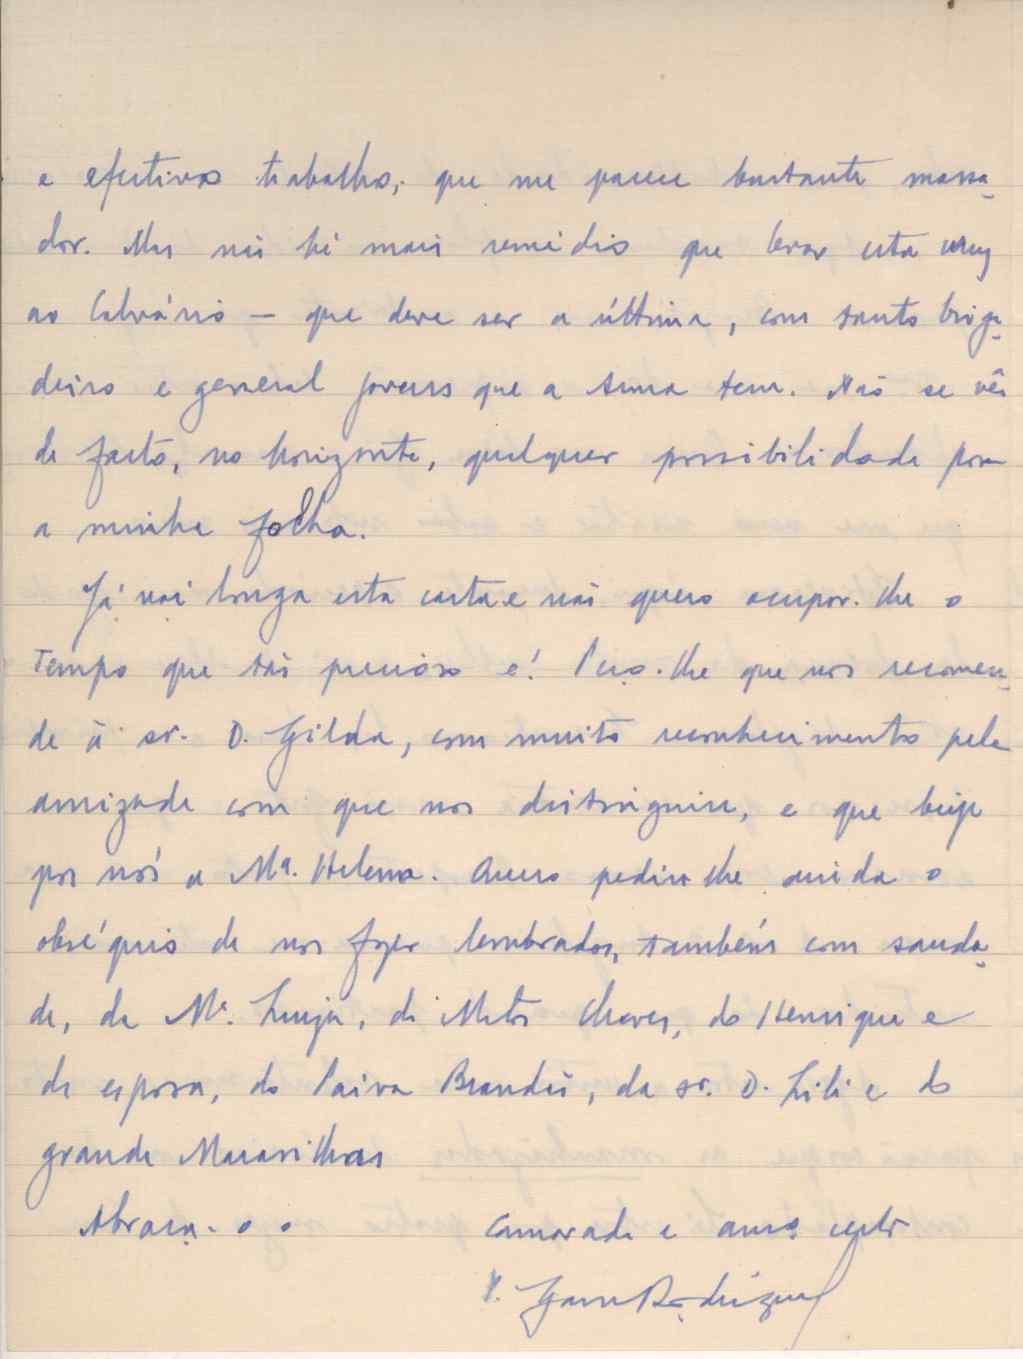 e efectivo trabalho, que me parece bastante massa-
dor. Mas não há mais remédio que levar esta cruz
ao Calvário — que deve ser a última, com tanto briga-
deiro e general jovens que a Arma tem. Não se vê
de facto, no horizonte, qualquer possibilidade para
a minha folha.
Já vai longa esta carta e não quero ocupar-lhe o
tempo que tão precioso é! Peço-lhe que nos recomen-
de à sr. D. Gilda, com muito reconhecimento pela
amizade com que nos distinguiu, e que beije
por nós a Mª. Helena. Quero pedir-lhe ainda o
obséquio de nos fazer lembrados, também com sauda-
de, da Mª. Luiza, do Matos Chaves, do Henrique e
da esposa, do Paiva Brandão, da sr. D. Lili e do
grande Maravilhas
Abraça-o o camarada e amº. certo
Rodrigues